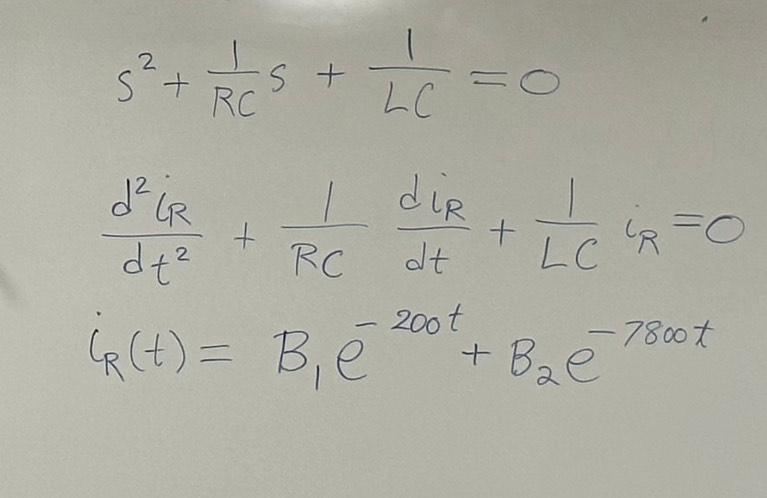 s² + 1/RC s + 1/LC = 0
d²i_R/dt² + 1/RC di_R/dt + 1/LC i_R = 0
i_R(t) = B₁e^(-200t) + B₂e^(-7800t)